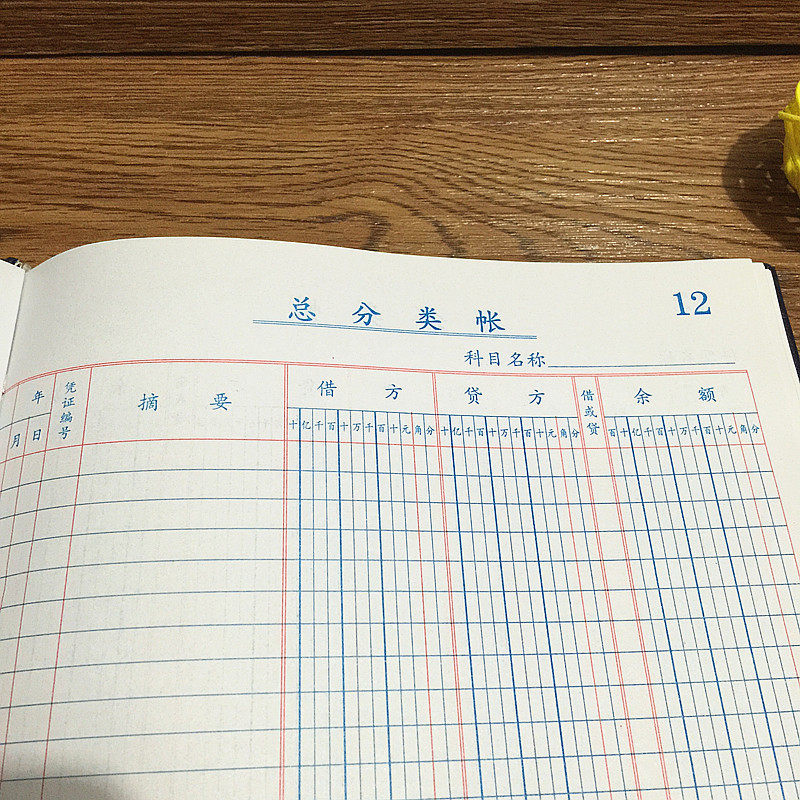 总分类帐
12
科目名称
年 凭证编号 摘要 借方 贷方 借或贷 余额
月 日 十亿千百十万千百十元角分 十亿千百十万千百十元角分 百十亿千百十万千百十元角分